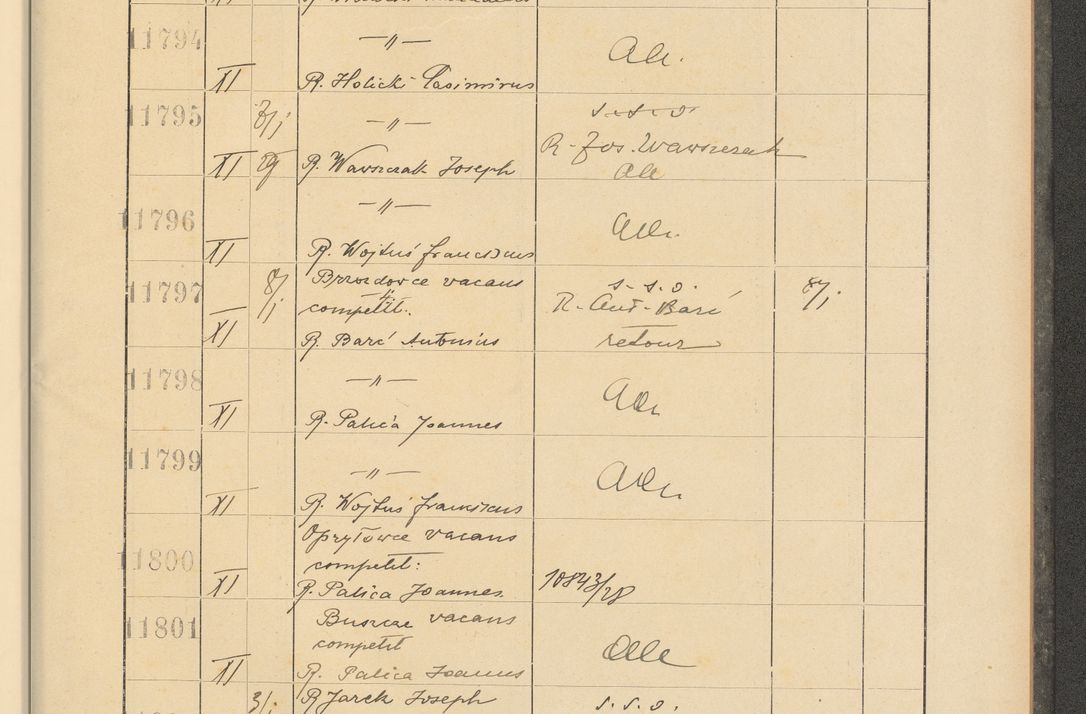 11794
—〃—
Alle.
XI R. Holicki Casimirus
11795 3/1 —〃—
s. s. o.
R. Jos. Wawszczak
XI R. Wawszczak Joseph
11796
—〃—
XI R. Wojtuś Franciscus
11797 8/1 Brzozdowce vacans
s. s. o. 8/1
competit:
R. Ant. Barć
XI R. Barć Antonius
retour
11798
—〃—
XI R. Palica Joannes
11799
—〃—
XI R. Wojtuś Franciscus
11800 Opryłowce vacans
competit:
XI R. Palica Joannes
10843/28
11801 Buszcze vacans
competit
XI R. Palica Joannes
3/1 R Jarek Joseph s. s. o.